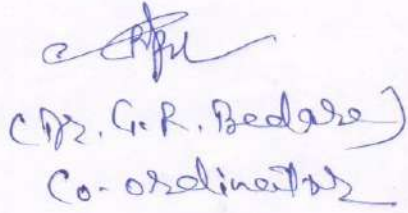 (Dr. G.R. Bedare)
Co-ordinator